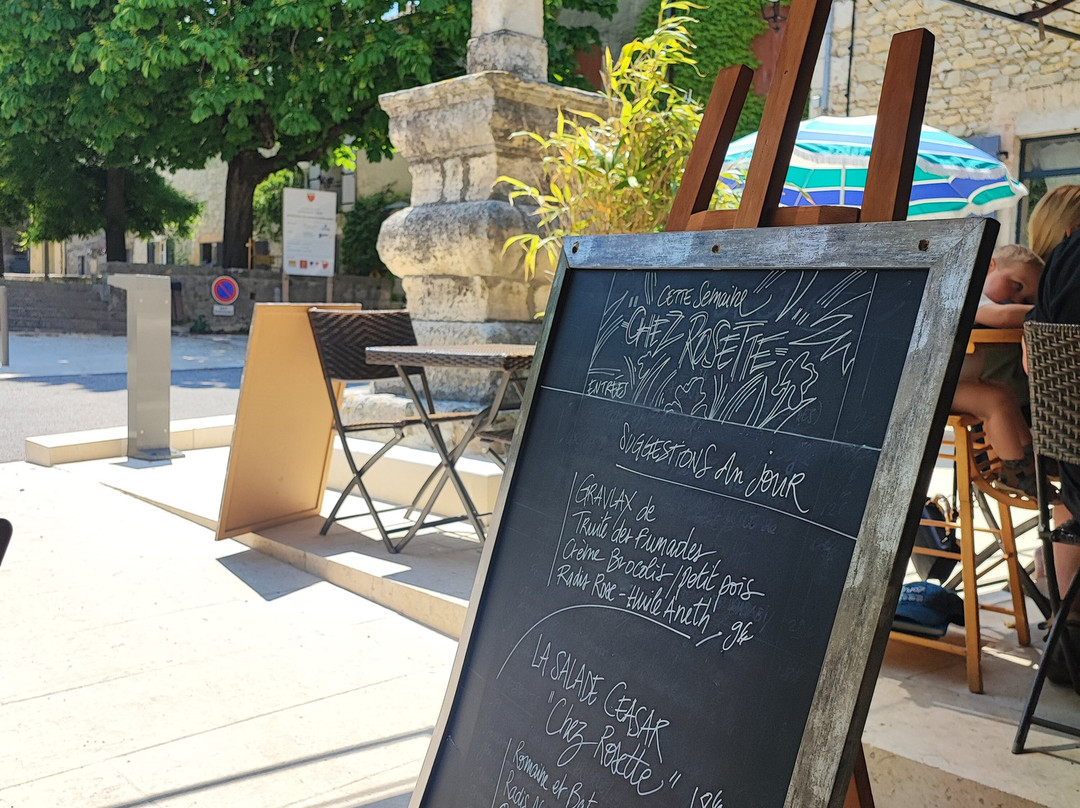 CETTE Semaine
"CHEZ ROSETTE"
ENTRÉES
SUGGESTIONS du jOUR
GRAVLAX de
Truite des Fumades
Crème Brocolis/petit pois
Radis Rose - Huile Aneth
9€
LA SALADE CEASAR
"Chez Rosette"
18€
Romaine et Bat
Radis N